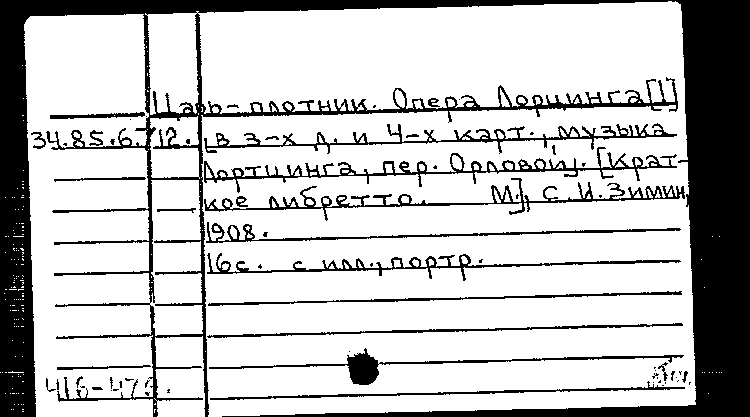 Царь-плотник. Опера Лорцинга[1]
34.85.6.712. [в 3-х д. и 4-х карт., музыка
Лортцинга, пер. Орловой]. [Крат-
кое либретто. М.], С.И.Зимин,
1908.
16с. с илл., портр.